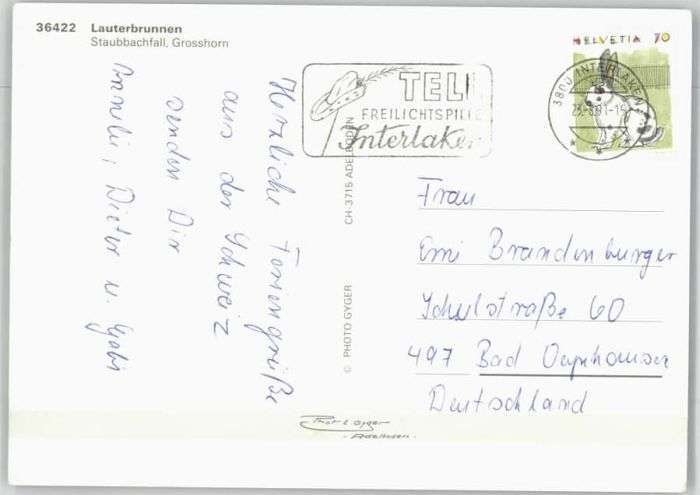 36422 Lauterbrunnen
Staubbachfall, Grosshorn
Herzliche Feriengrüße
aus der Schweiz
senden Dir
Dieter u. Gabi
© PHOTO GYGER CH-3715 ADELBODEN
TELL
FREILICHTSPIELE
Interlaken
HELVETIA 70
3800 INTERLAKEN
Frau
Emi Brandenburger
Schulstraße 60
497 Bad Oeynhausen
Deutschland
Photo Gyger
Adelboden